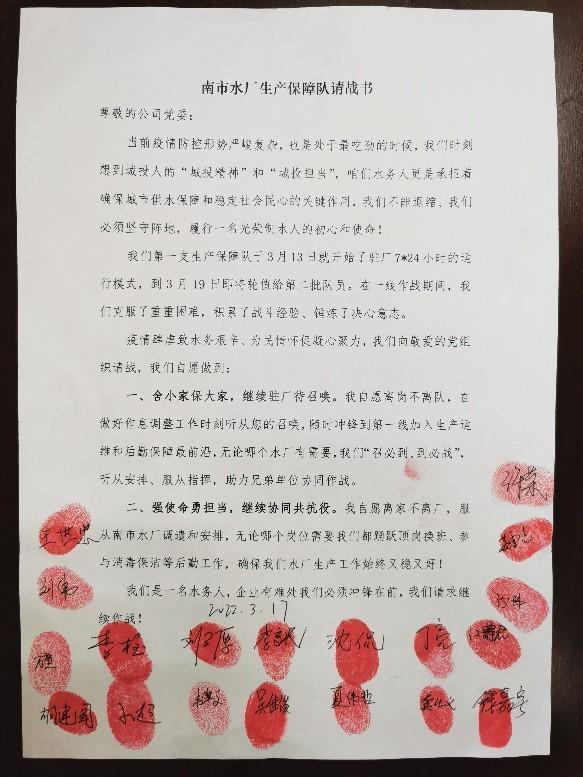 南市水厂生产保障队请战书
尊敬的公司党委：
当前疫情防控形势严峻复杂，也是处于最吃劲的时候，我们时刻
想到城投人的“城投精神”和“城投担当”，咱们水务人更是承担着
确保城市供水保障和稳定社会民心的关键作用，我们不能退缩、我们
必须坚守阵地，履行一名光荣制水人的初心和使命！
我们第一支生产保障队于3月13日就开始了驻厂7*24小时的运
行模式，到3月19日即将轮值给第二批队员。在一线作战期间，我
们克服了重重困难，积累了战斗经验、锤炼了决心意志。
疫情肆虐致水务艰辛、为民情怀促凝心聚力，我们向敬爱的党组
织请战，我们自愿做到：
一、舍小家保大家，继续驻厂待召唤。我自愿离岗不离队，在
做好作息调整工作时刻听从您的召唤，随时冲锋到第一线加入生产运
维和后勤保障最前沿，无论哪个水厂有需要，我们“召必到、到必战”，
听从安排、服从指挥，助力兄弟单位协同作战。
二、强使命勇担当，继续协同共抗役。我自愿离家不离厂，服
从南市水厂调遣和安排，无论哪个岗位需要我们都踊跃顶岗换班、参
与消毒保洁等后勤工作，确保我们水厂生产工作始终又稳又好！
我们是一名水务人，企业有难处我们必须冲锋在前，我们请求继
续作战！
2022.3.17
王世忠
刘伟
李桓
沈侃
丁亮
胡建国
小超
夏伟哲